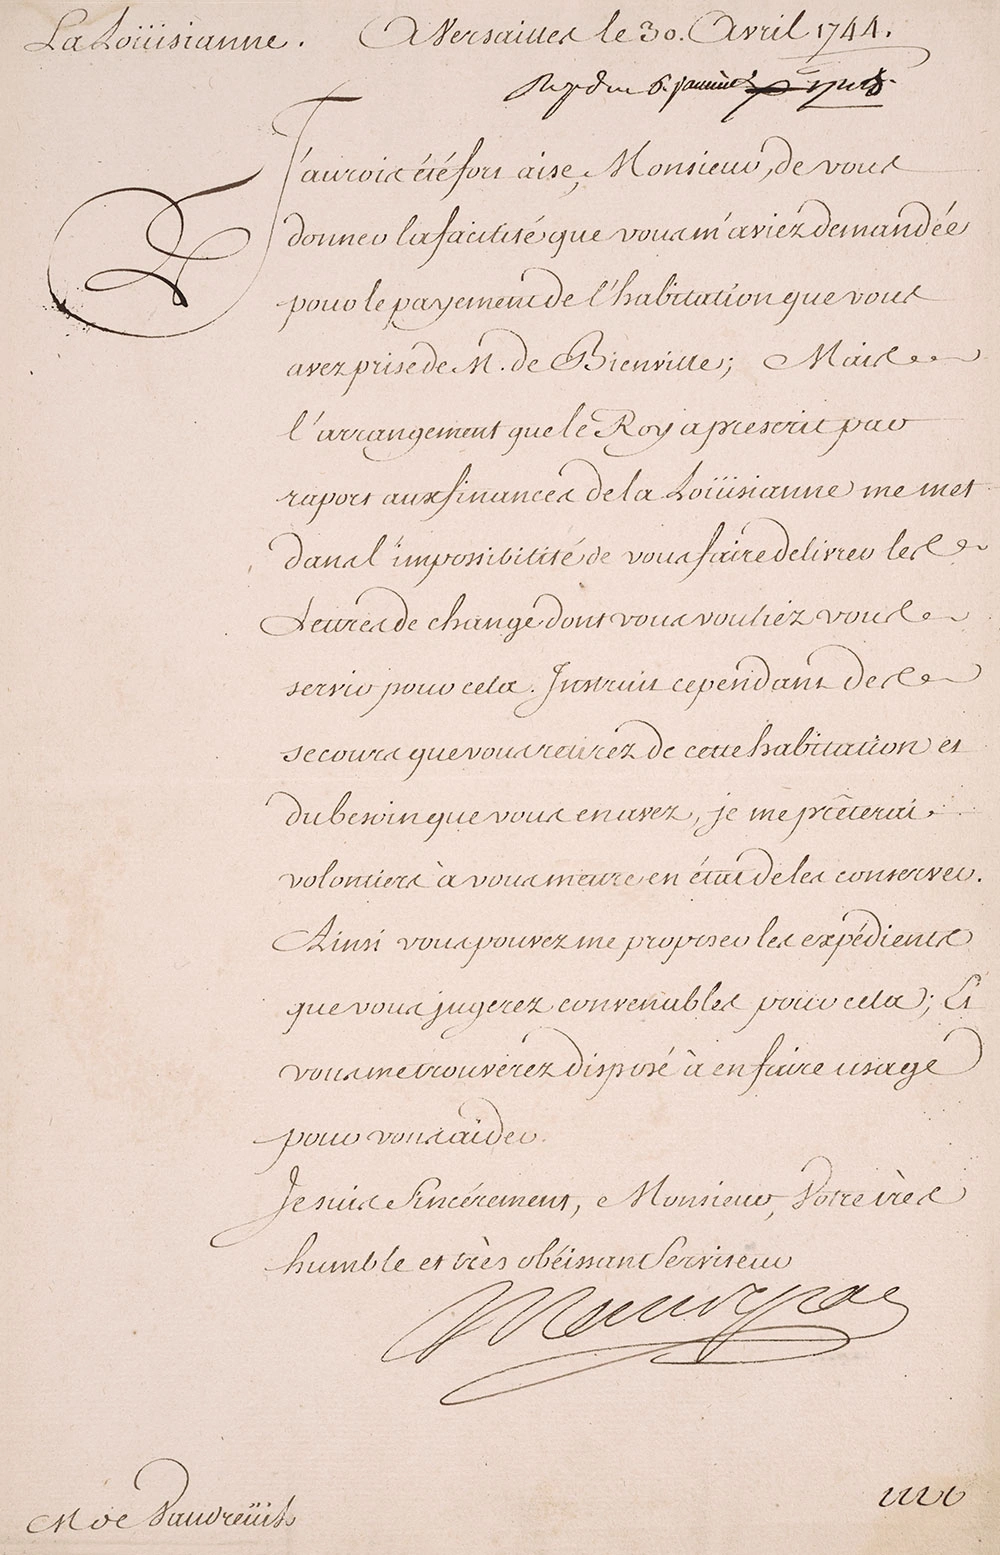 La Loüisianne. A Versailles le 30. Avril 1744.
Rep du 6. janvier
J'aurois été fort aise, Monsieur, de vous
donner la facilité que vous m'aviez demandée
pour le payement de l'habitation que vous
avez prise de M. de Bienville; Mais
l'arrangement que le Roy a prescrit par
raport aux finances de la Loüisianne me met
dans l'impossibilité de vous faire delivrer les
Lettres de change dont vous vouliez vous
servir pour cela. Instruit cependant des
secours que vous retirez de cette habitation et
du besoin que vous en avez, je me prêterai
volontiers à vous mettre en état de les conserver.
Ainsi vous pouvez me proposer les expédients
que vous jugerez convenables pour cela; Et
vous me trouverez disposé à en faire usage
pour vous aider.
Je suis Sincérement, Monsieur, Votre très
humble et très obéissant Serviteur
Maurepas
M de Vaudreüil